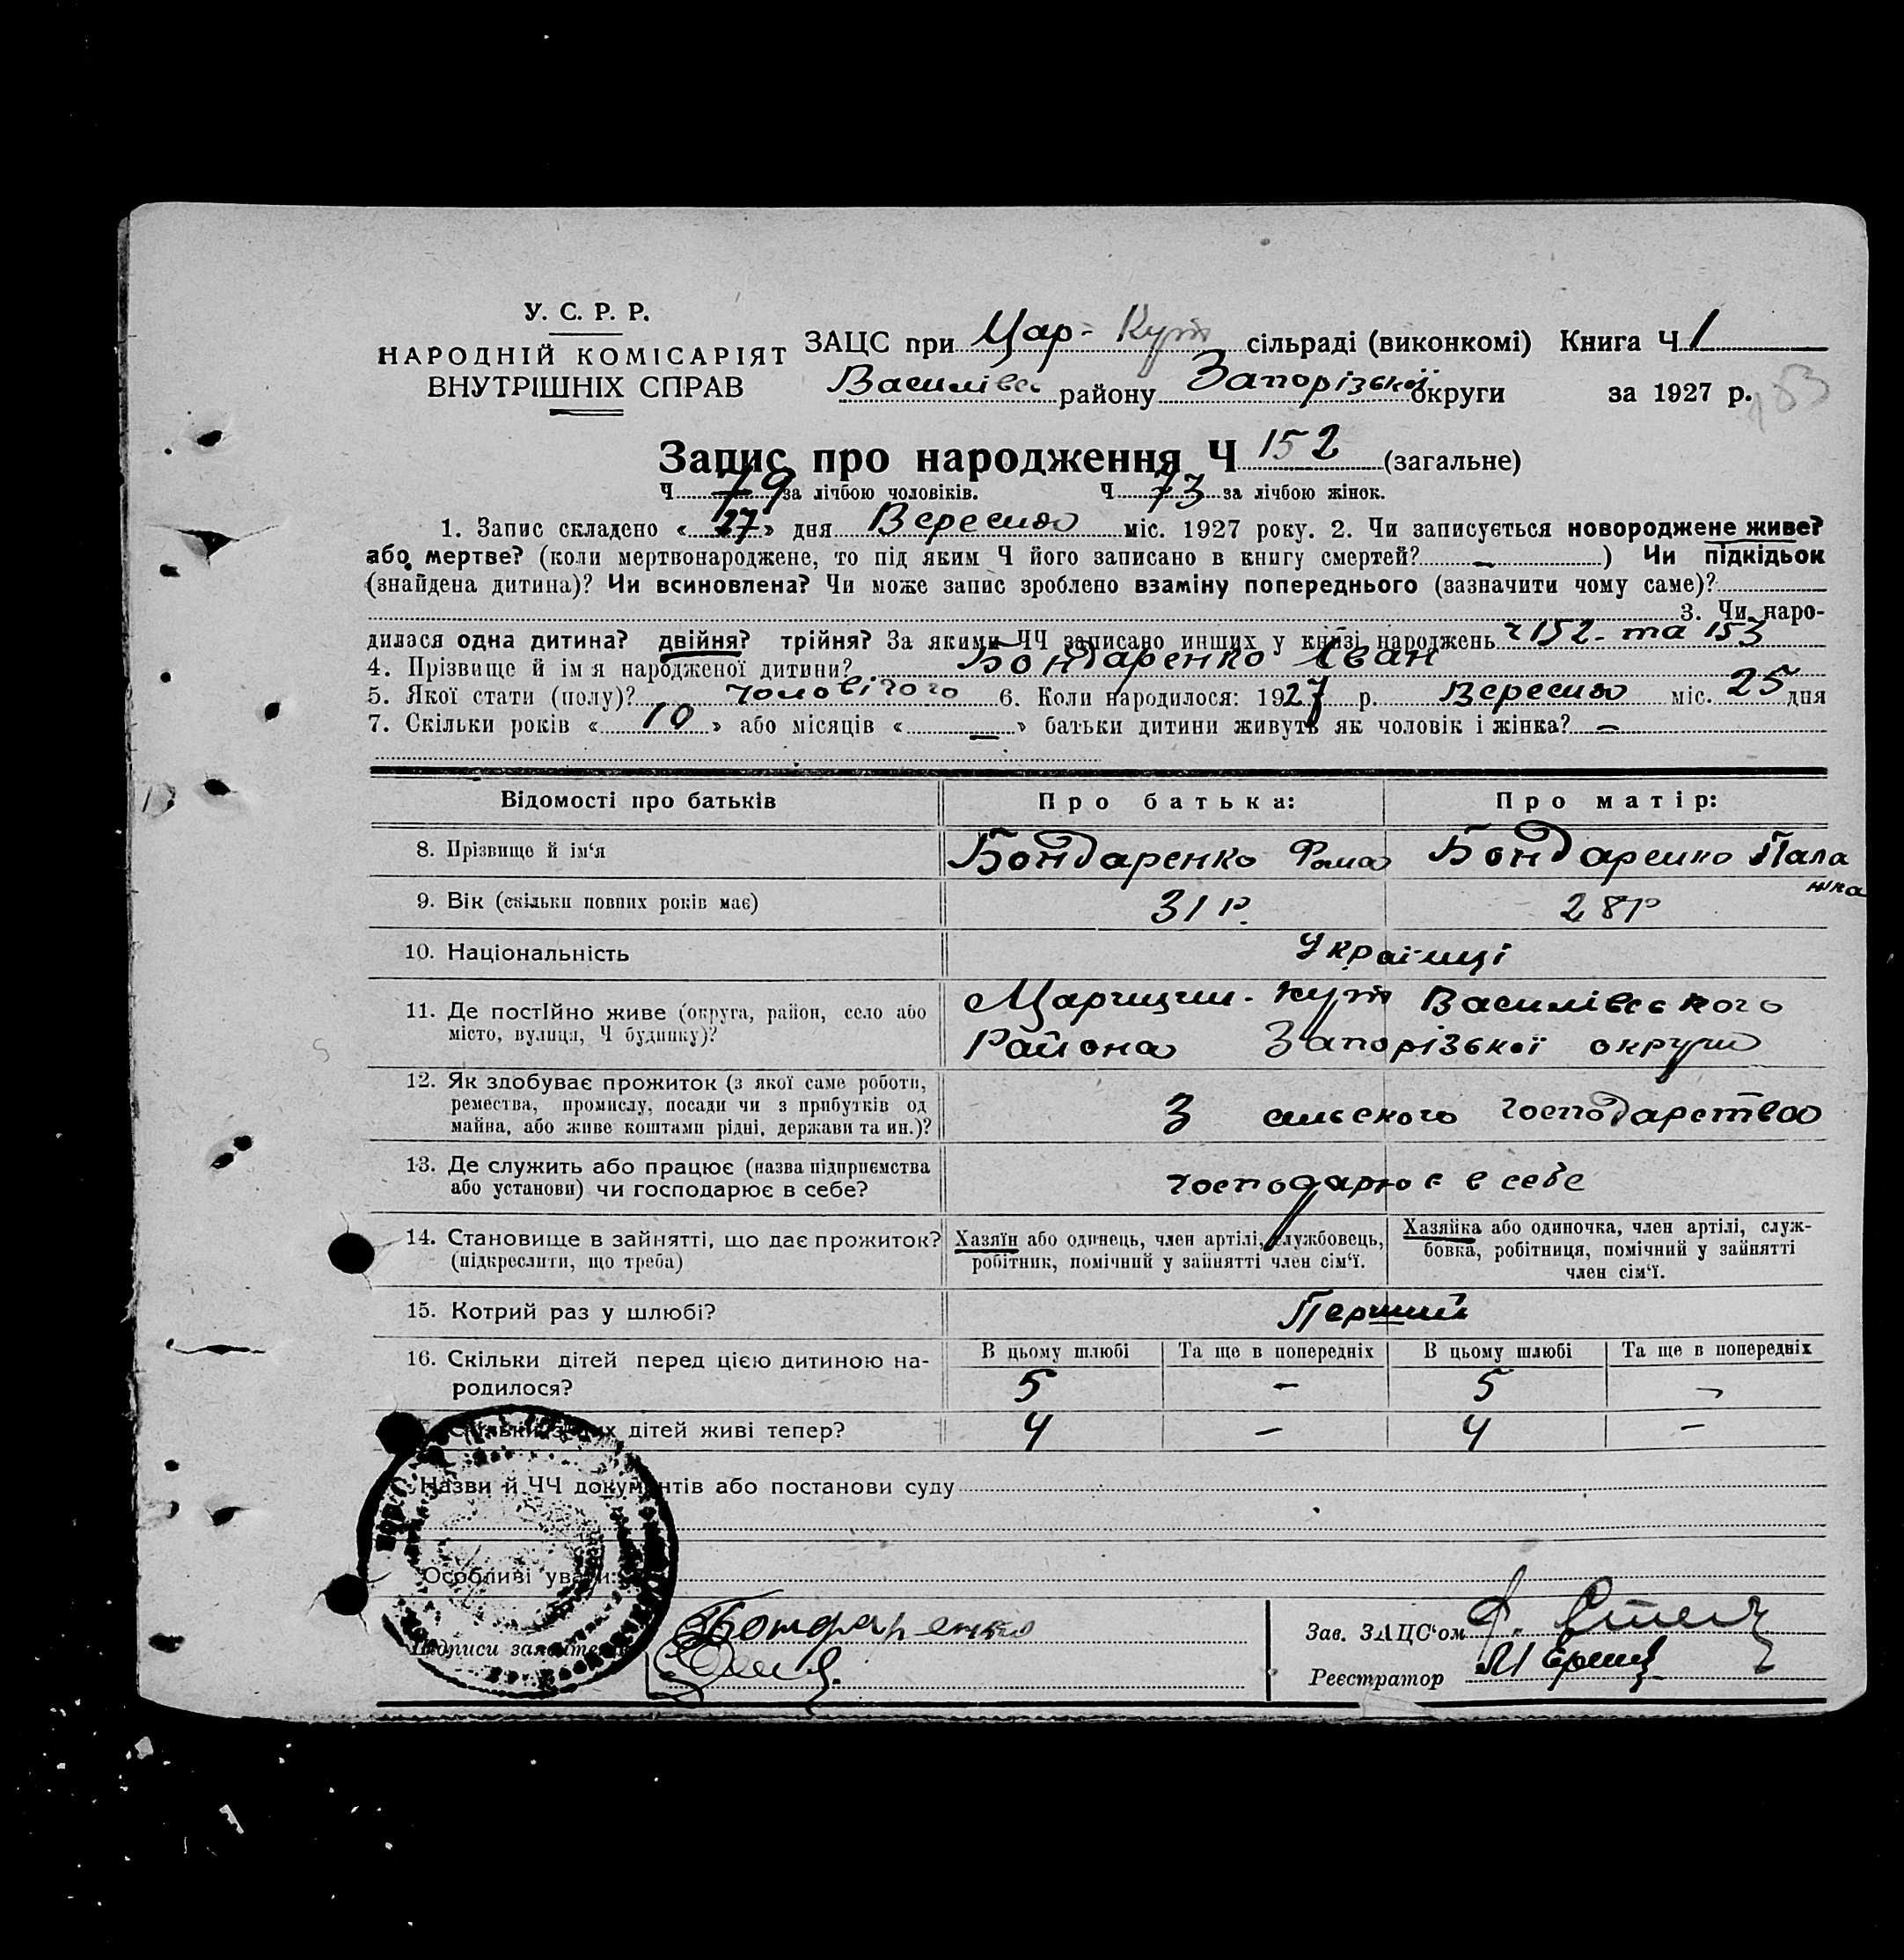 У. С. Р. Р.
НАРОДНІЙ КОМІСАРІЯТ
ВНУТРІШНІХ СПРАВ
ЗАЦС при Цар-Кут сільраді (виконкомі) Книга Ч 1
Василівс району Запорізької округи за 1927 р. 153
Запис про народження Ч 152 (загальне)
Ч 79 за лічбою чоловіків. Ч 73 за лічбою жінок.
1. Запис складено « 27 » дня Вересня міс. 1927 року. 2. Чи записується новороджене живе?
або мертве? (коли мертвонароджене, то під яким Ч його записано в книгу смертей? — ) Чи підкідьок
(знайдена дитина)? Чи всиновлена? Чи може запис зроблено взаміну попереднього (зазначити чому саме)?
3. Чи наро-
дилася одна дитина? двійня? трійня? За якими ЧЧ записано инших у книзі народжень ч 152 - та 153
4. Прізвище й ім я народженої дитини? Бондаренко Іван
5. Якої стати (полу)? чоловічого 6. Коли народилося: 1927 р. Вересня міс. 25 дня
7. Скільки років « 10 » або місяців « — » батьки дитини живуть як чоловік і жінка? —
Відомості про батьків Про батька: Про матір:
8. Прізвище й ім‘я Бондаренко Фома Бондаренко Пала
жка
9. Вік (скільки повних років має) 31 р. 28 р
10. Національність Українці
11. Де постійно живе (округа, район, село або Царицин-Кут Василівського
місто, вулиця, Ч будинку)? Района Запорізької округи
12. Як здобуває прожиток (з якої саме роботи,
ремества, промислу, посади чи з прибутків од З сільского господарства
майна, або живе коштами рідні, держави та ин.)?
13. Де служить або працює (назва підприємства
або установи) чи господарює в себе? господарює в себе
14. Становище в зайнятті, що дає прожиток? Хазяїн або одинець, член артілі, службовець, Хазяйка або одиночка, член артілі, служ-
(підкреслити, що треба) робітник, помічний у зайнятті член сім‘ї. бовка, робітниця, помічний у зайнятті
член сім‘ї.
15. Котрий раз у шлюбі? Перший
16. Скільки дітей перед цією дитиною на- В цьому шлюбі Та ще в попередніх В цьому шлюбі Та ще в попередніх
родилося? 5 — 5 —
Скільки з них дітей живі тепер? 4 — 4 —
Назви й ЧЧ документів або постанови суду
Особливі уваги:
Підписи заявителів Бондаренко
Зав. ЗАЦС‘ом
Реєстратор